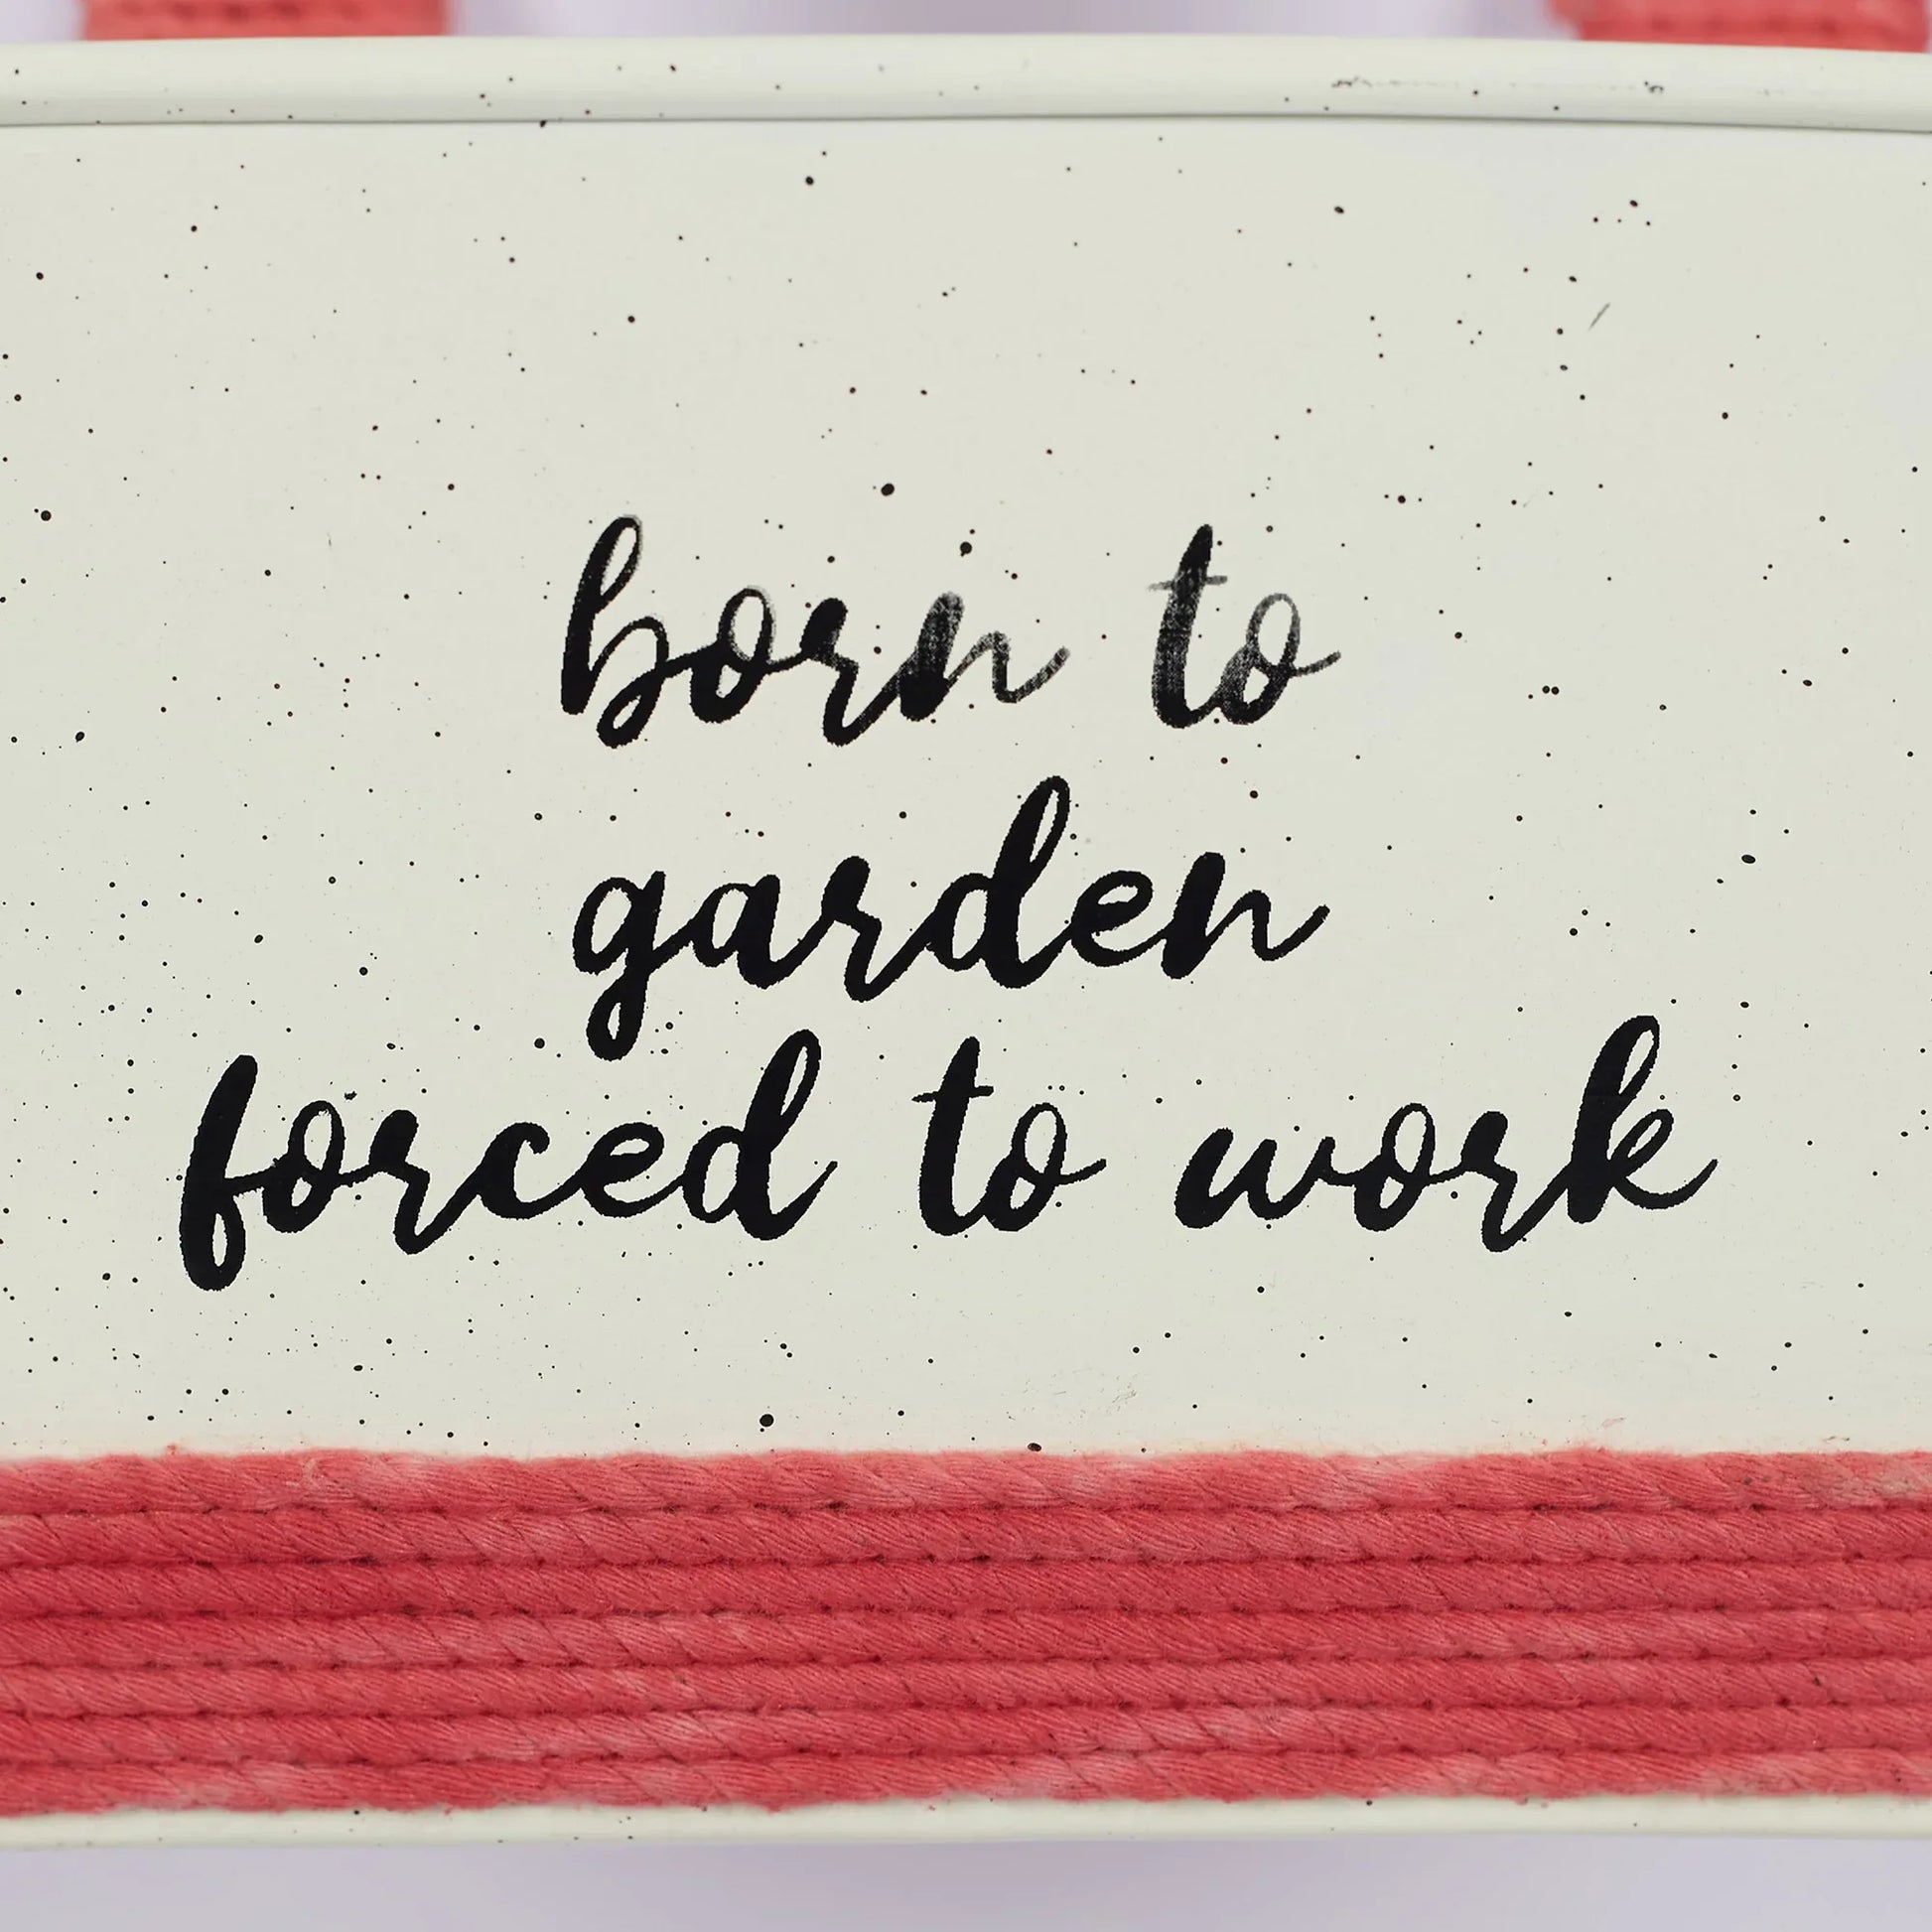 born to
garden
forced to work